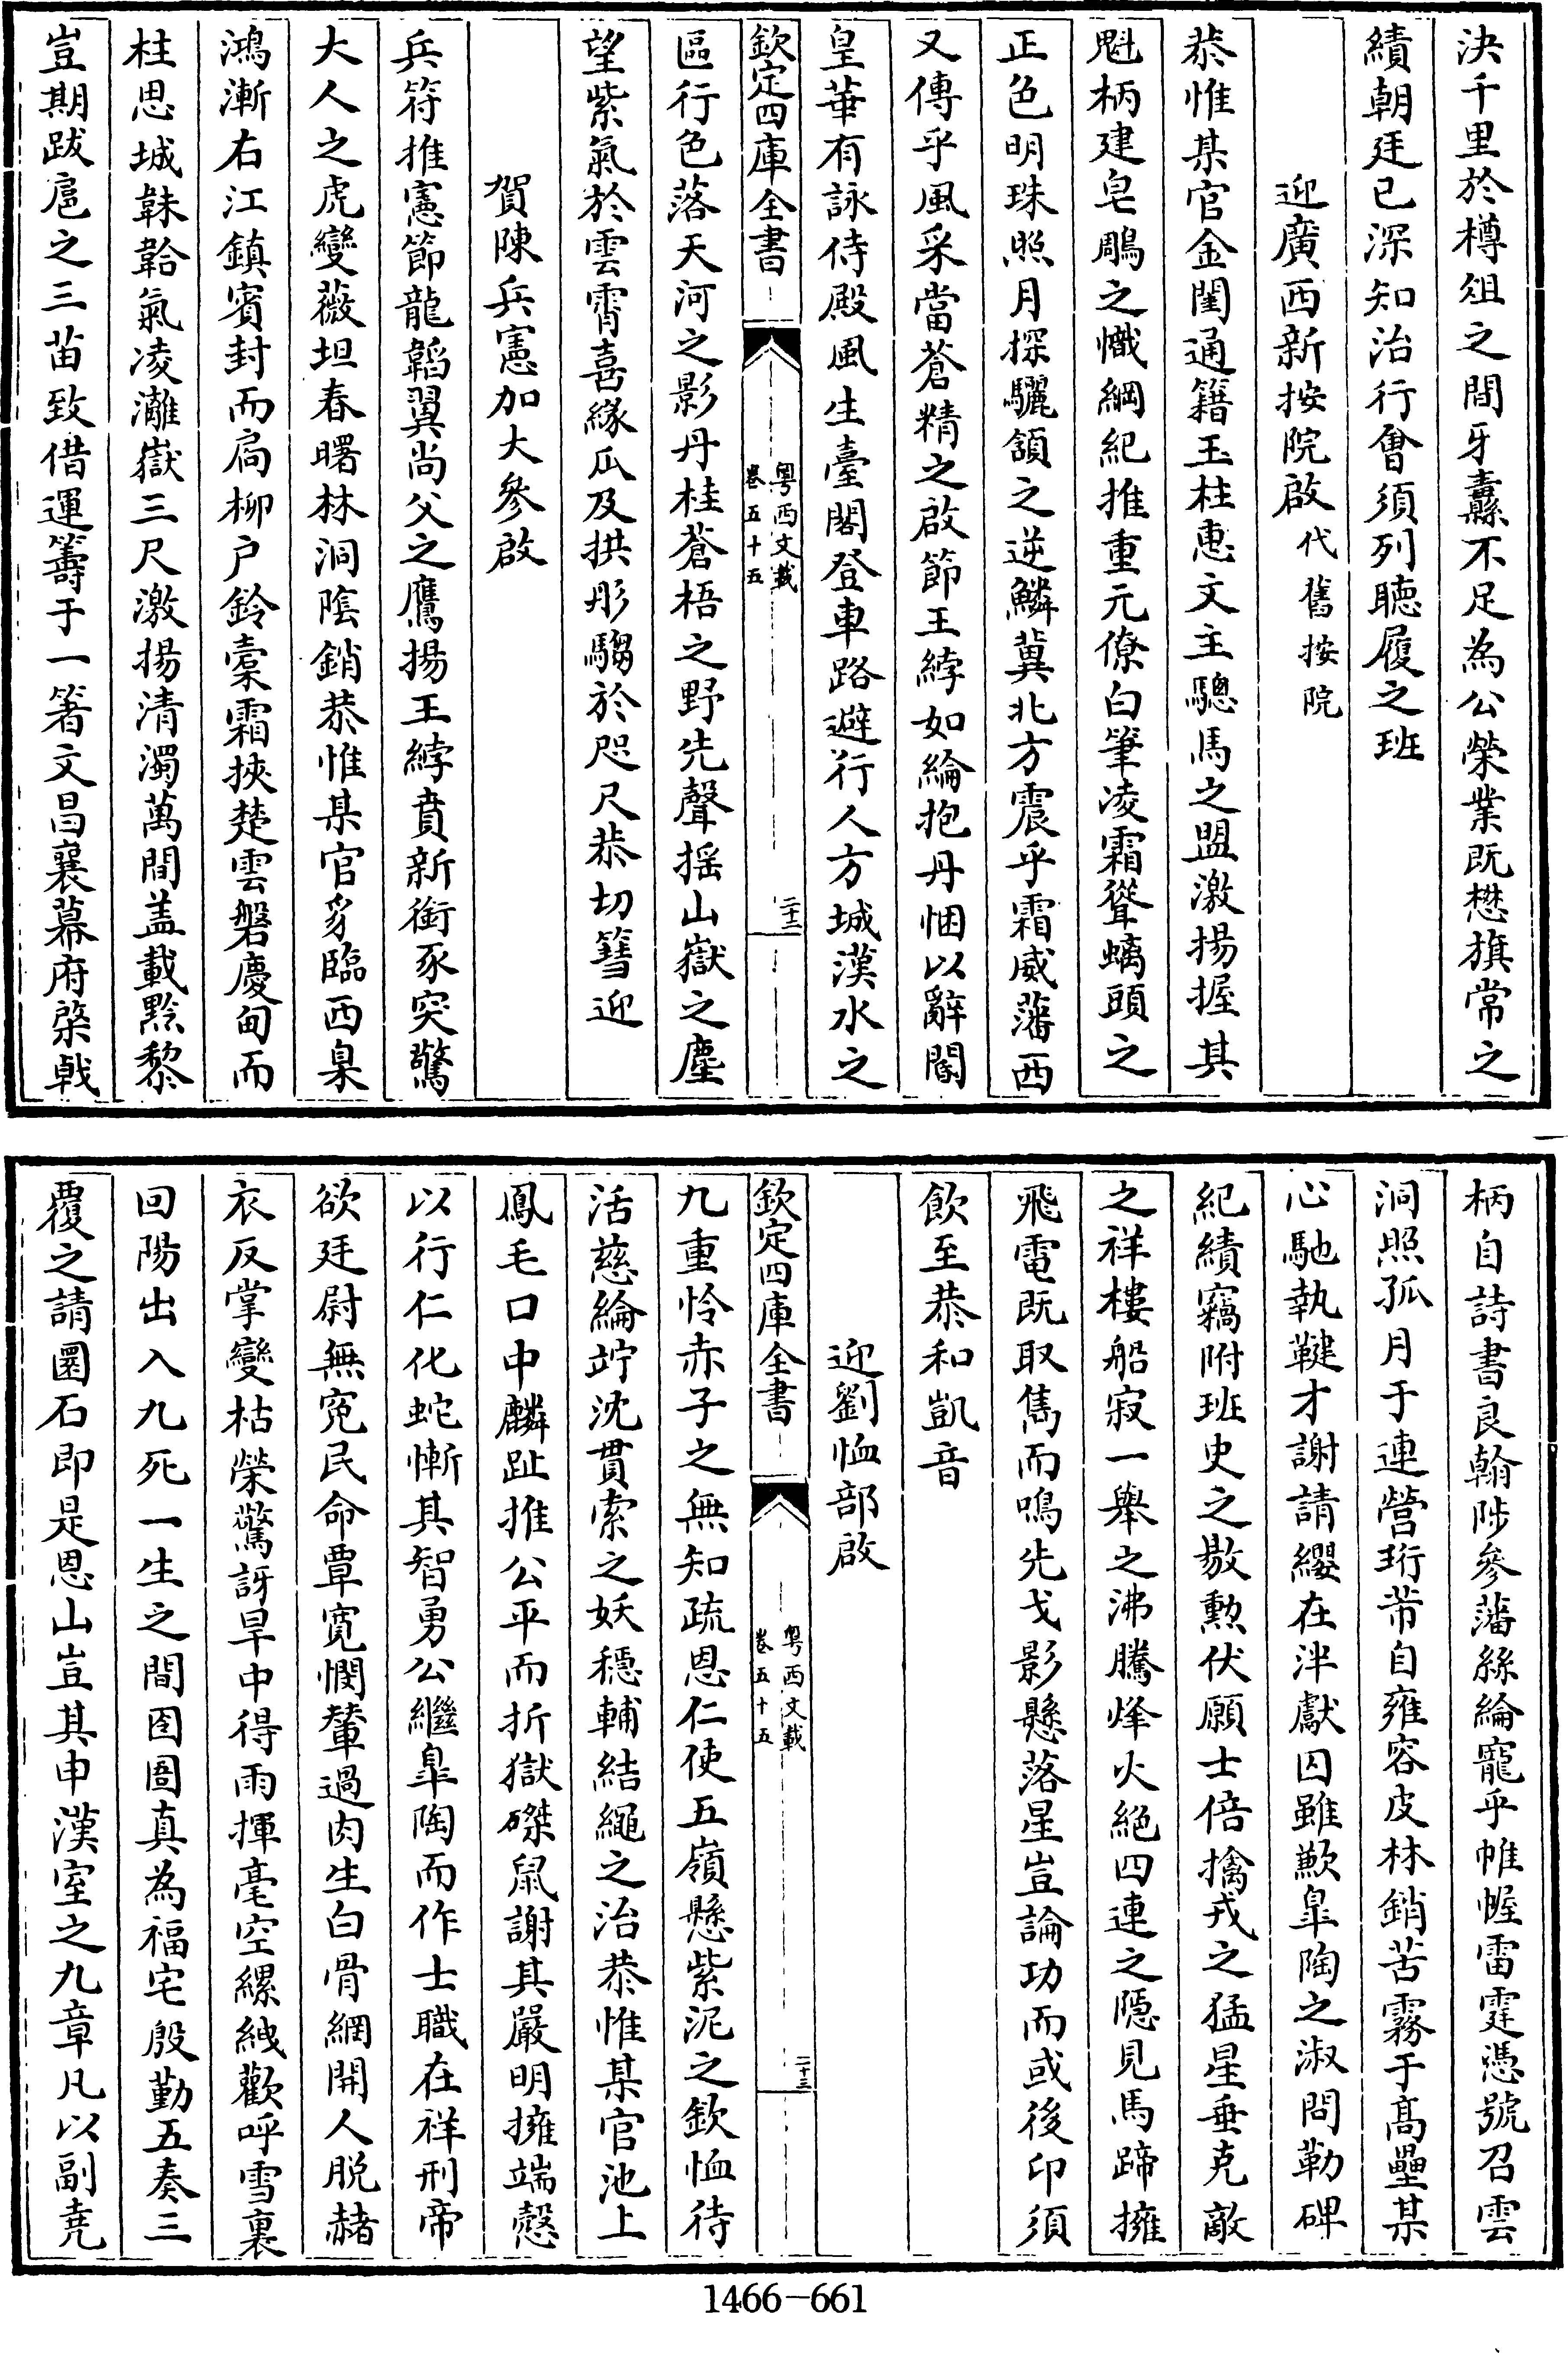 決千里於樽俎之間牙纛不足為公榮業既懋旗常之
績朝廷已深知治行會須列聴履之班
迎廣西新按院啟代舊按院
恭惟某官金閨通籍玉柱惠文主驄馬之盟激揚握其
魁柄建皂鵰之幟綱紀推重元僚白筆凌霜聳螭頭之
正色明珠照月探驪頷之逆鱗冀北方震乎霜威藩西
又傳乎風采當蒼精之啟節王綍如綸抱丹悃以辭闕
皇華有詠侍殿風生臺閣登車路避行人方城漢水之
欽定四庫全書
粤西文載
卷五十五
二十二
區行色落天河之影丹桂蒼梧之野先聲揺山嶽之塵
望紫氣於雲霄喜緣瓜及拱彤騶於咫尺恭切篲迎
賀陳兵憲加大參啟
兵符推憲節龍韜翼尚父之鷹揚王綍賁新銜豕突驚
大人之虎變薇垣春曙林洞陰銷恭惟某官豸臨西臬
鴻漸右江鎮賓封而扃柳户鈴櫜霜挾楚雲磐慶甸而
柱思城韎韐氣凌灕嶽三尺激揚清濁萬間盖載黔黎
豈期跋扈之三苗致借運籌于一箸文昌襄幕府棨戟
柄自詩書良翰陟參藩絲綸寵乎帷幄雷霆憑號召雲
洞照孤月于連營珩芾自雍容皮林銷苦霧于髙壘某
心馳執鞬才謝請纓在泮獻囚雖歉臯陶之淑問勒碑
紀績竊附班史之敭勲伏願士倍擒戎之猛星垂克敵
之祥樓船寂一舉之沸騰烽火絶四連之隠見馬蹄擁
飛電既取雋而鳴先戈影懸落星豈論功而或後印須
飲至恭和凱音
迎劉恤部啟
欽定四庫全書
粤西文載
卷五十五
二十三
九重怜赤子之無知疏恩仁使五嶺懸紫泥之欽恤待
活慈綸竚沈貫索之妖穏輔結繩之治恭惟某官池上
鳳毛口中麟趾推公平而折獄磔鼠謝其嚴明擁端慤
以行仁化蛇慚其智勇公繼臯陶而作士職在祥刑帝
欲廷尉無寃民命覃寛憫輦過肉生白骨網開人脱赭
衣反掌變枯榮驚訝旱中得雨揮毫空縲絏歡呼雪裏
回陽出入九死一生之間囹圄真為福宅殷勤五奏三
覆之請圜石即是恩山豈其申漢室之九章凡以副尭
1466-661